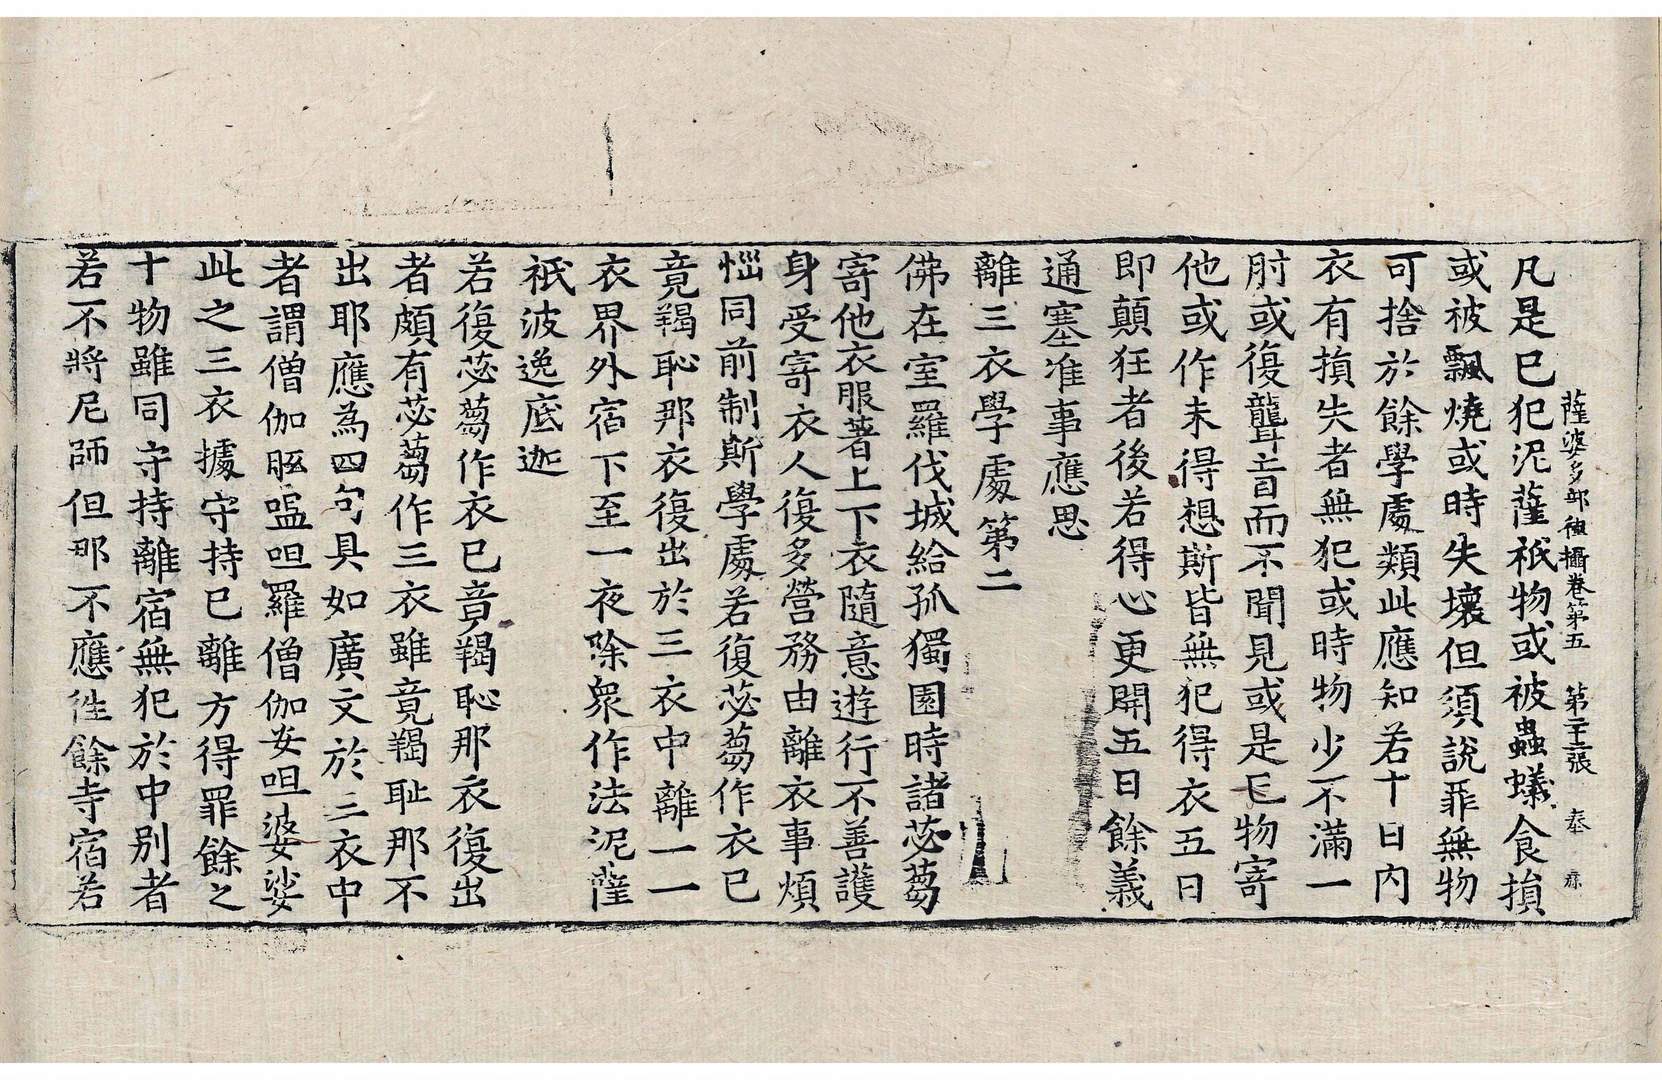 薩婆多部律攝卷第五　第二十二張　奉
凡是已犯泥薩祇物或被蟲蟻食損
或被飄燒或時失壞但須說罪無物
可捨於餘學處類此應知若十日內
衣有損失者無犯或時物少不滿一
肘或復聾盲而不聞見或是已物寄
他或作未得想斯皆無犯得衣五日
即顛狂者後若得心更開五日餘義
通塞准事應思
離三衣學處第二
佛在室羅伐城給孤獨園時諸苾蒭
寄他衣服著上下衣隨意遊行不善護
身受寄衣人復多營務由離衣事煩
惱同前制斯學處若復苾蒭作衣已
竟羯恥那衣復出於三衣中離一一
衣界外宿下至一夜除衆作法泥薩
祇波逸底迦
若復苾蒭作衣已竟羯恥那衣復出
者頗有苾蒭作三衣雖竟羯耻那不
出耶應為四句具如廣文於三衣中
者謂僧伽胝嗢呾羅僧伽安呾婆娑
此之三衣據守持已離方得罪餘之
十物雖同守持離宿無犯於中別者
若不將尼師但那不應往餘寺宿若